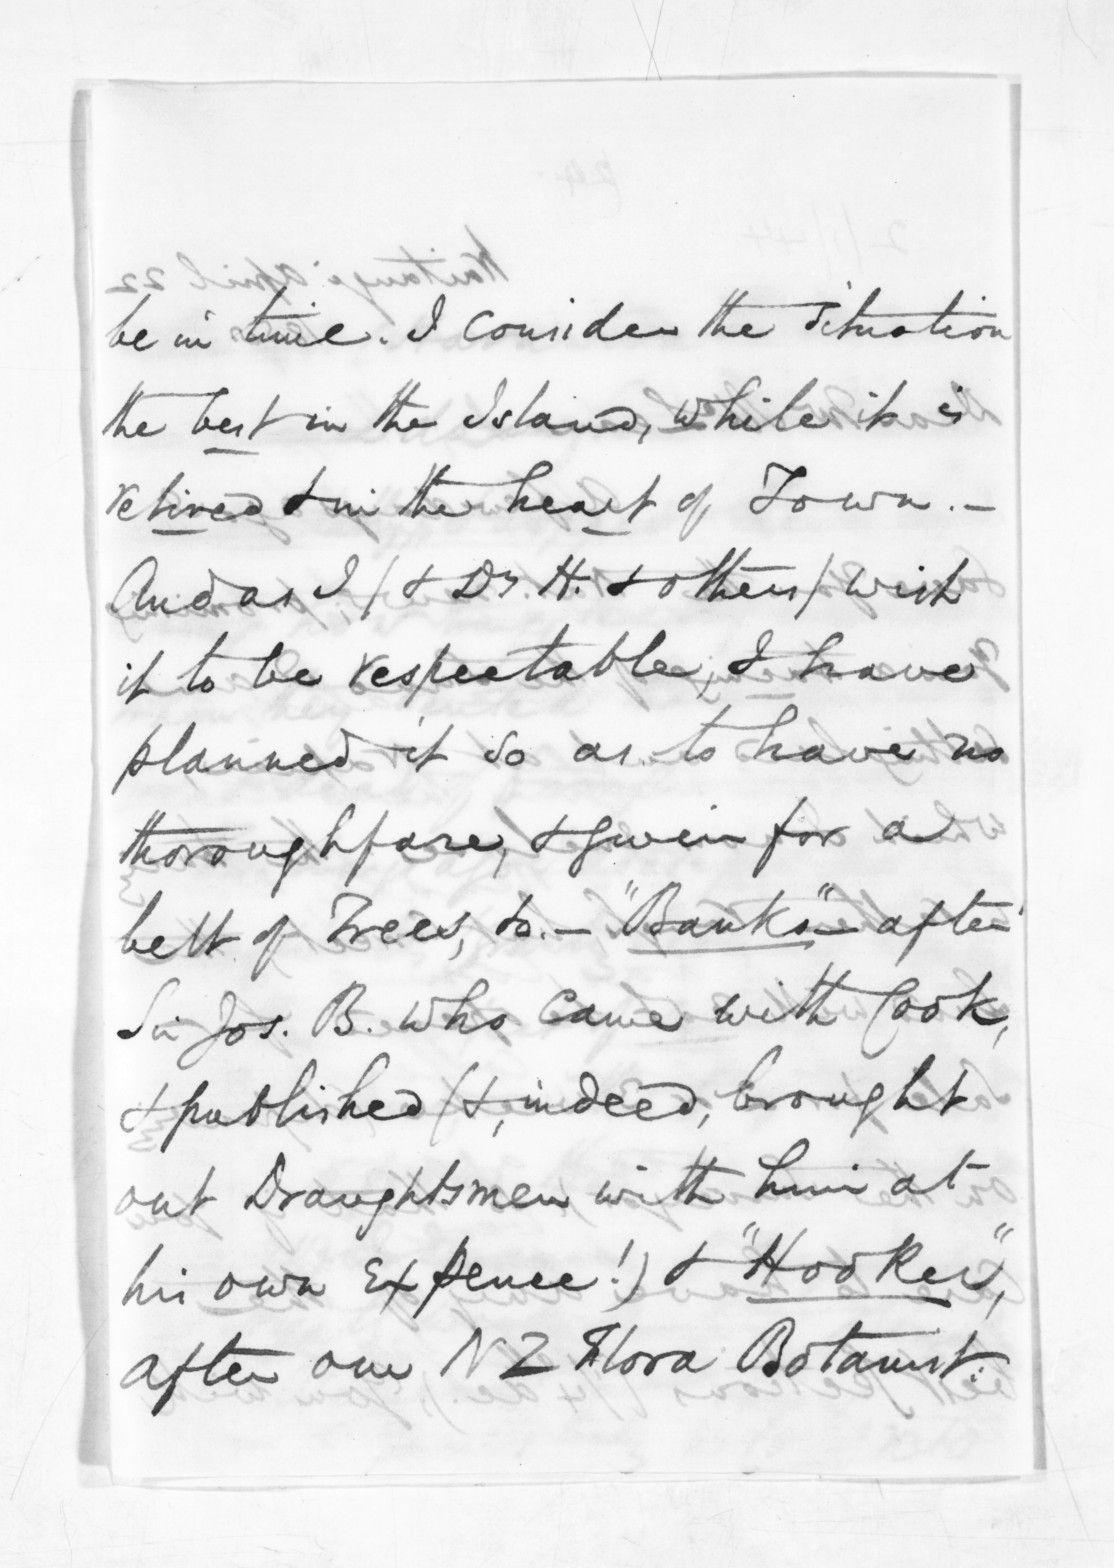 be in time. I consider the situation
the best in the Island, while it is
retired & in the heart of Town. –
And as I (& Dr. H. & others) wish
it to be respectable, I have
planned it so as to have no
thoroughfare, & given for a
belt of Trees, &c. – "Banks" – after
Sir Jos. B. who came with Cook,
& published (&, indeed, brought
out Draughtsmen with him at
his own expence!) & "Hooker",
after our NZ Flora Botanist.